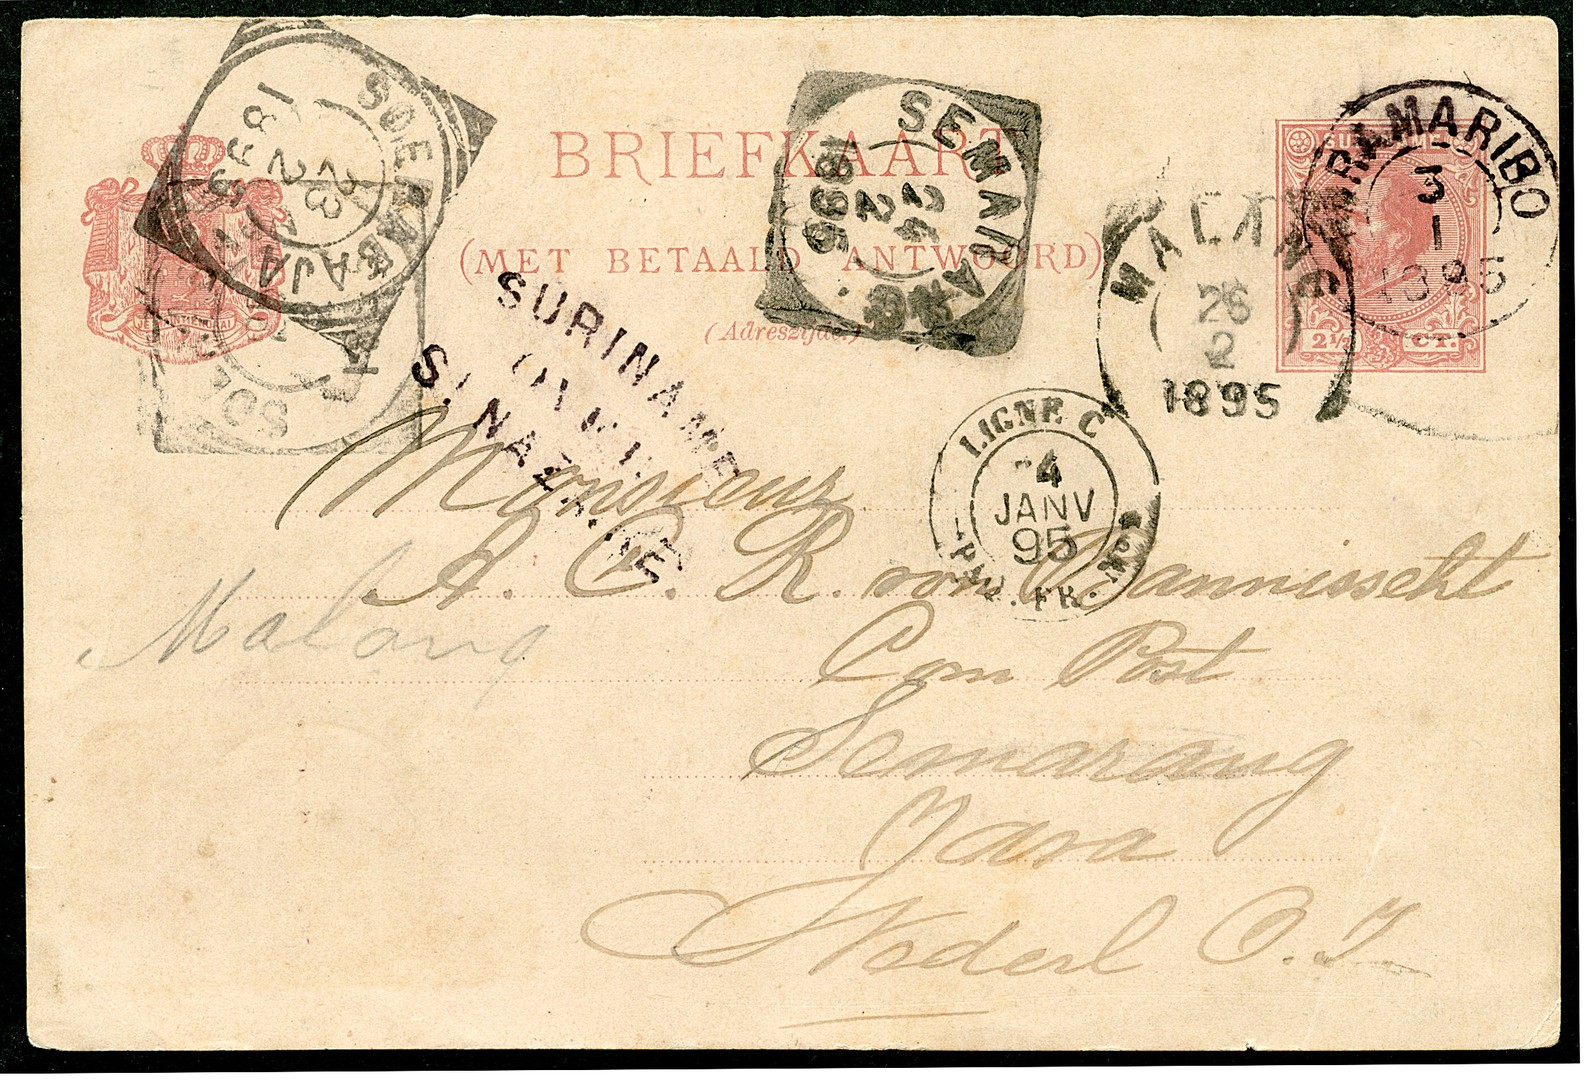 BRIEFKAART
(MET BETAALD ANTWOORD)
(Adreszijde.)
SURINAME
2½ CT.
PARAMARIBO
3
1
1895
SOERABAJA
23
2
1895
SEMARANG
24
2
1895
MALANG
26
2
1895
SURINAME
VIA
ST. NAZAIRE
LIGNE C
4
JANV
95
PAQ. FR.
Monsieur
A. C. R. von
Com Post
Semarang
Java
Nederl O. I.
Malang